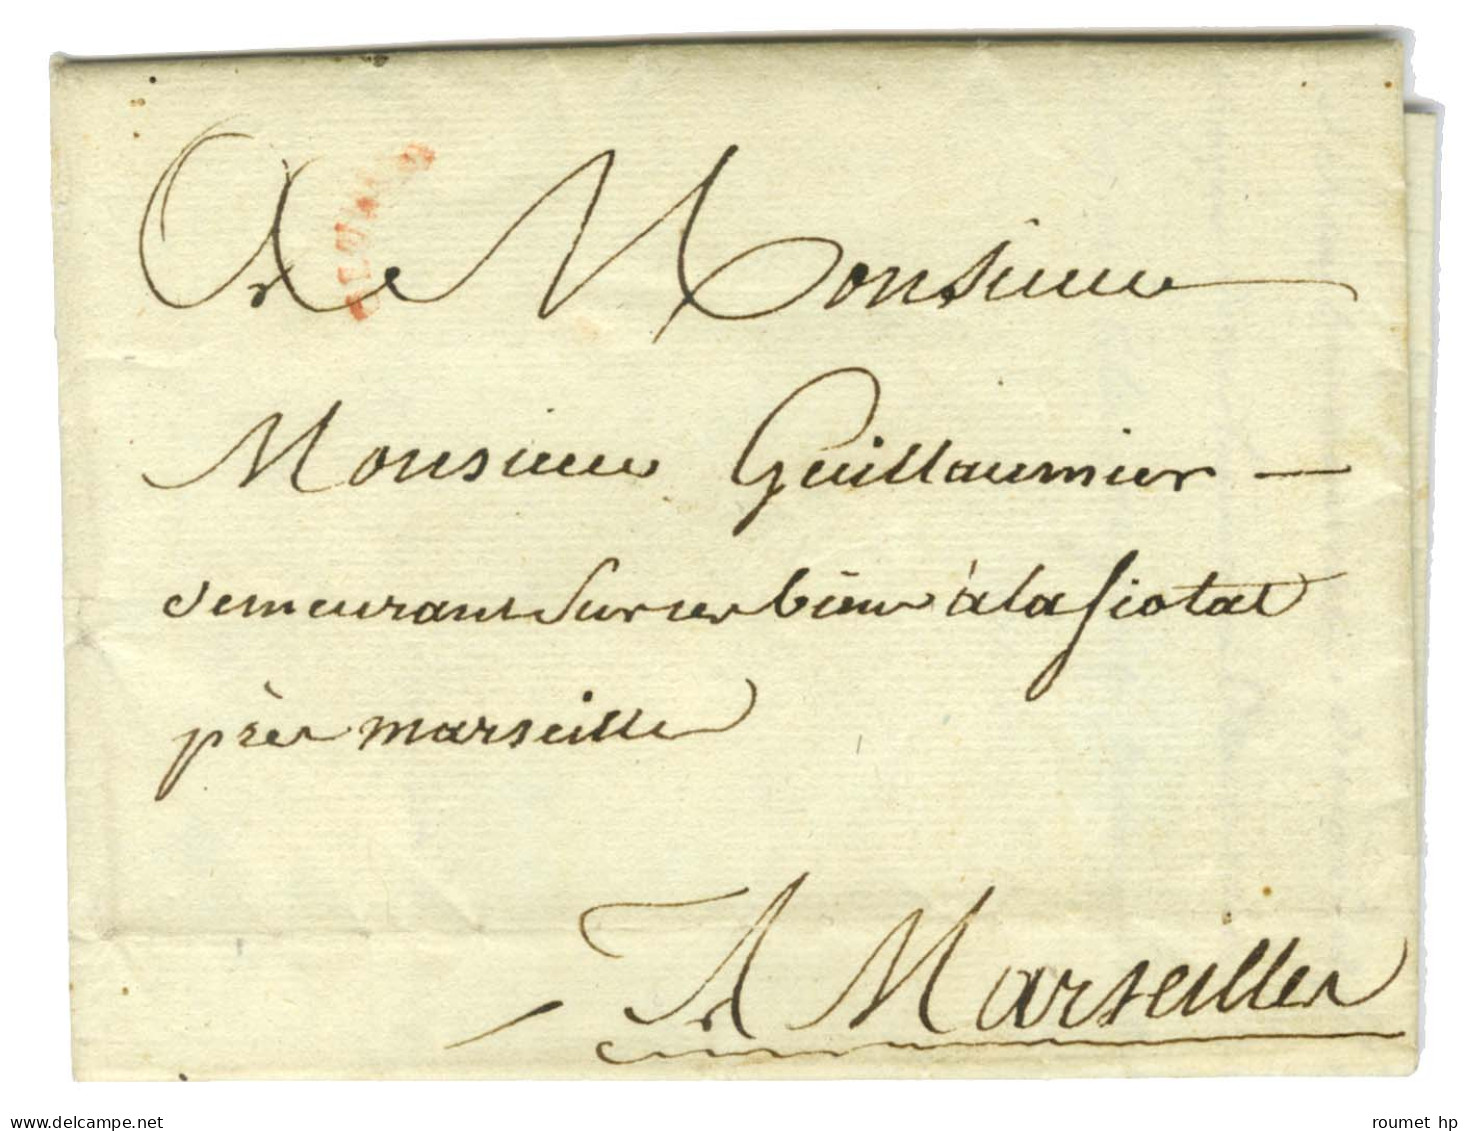 A Monsieur
Monsieur Guillaumier —
demeurant sur ses biens à la siotat
près marseille
A Marseilles
www.delcampe.net
roumet hp